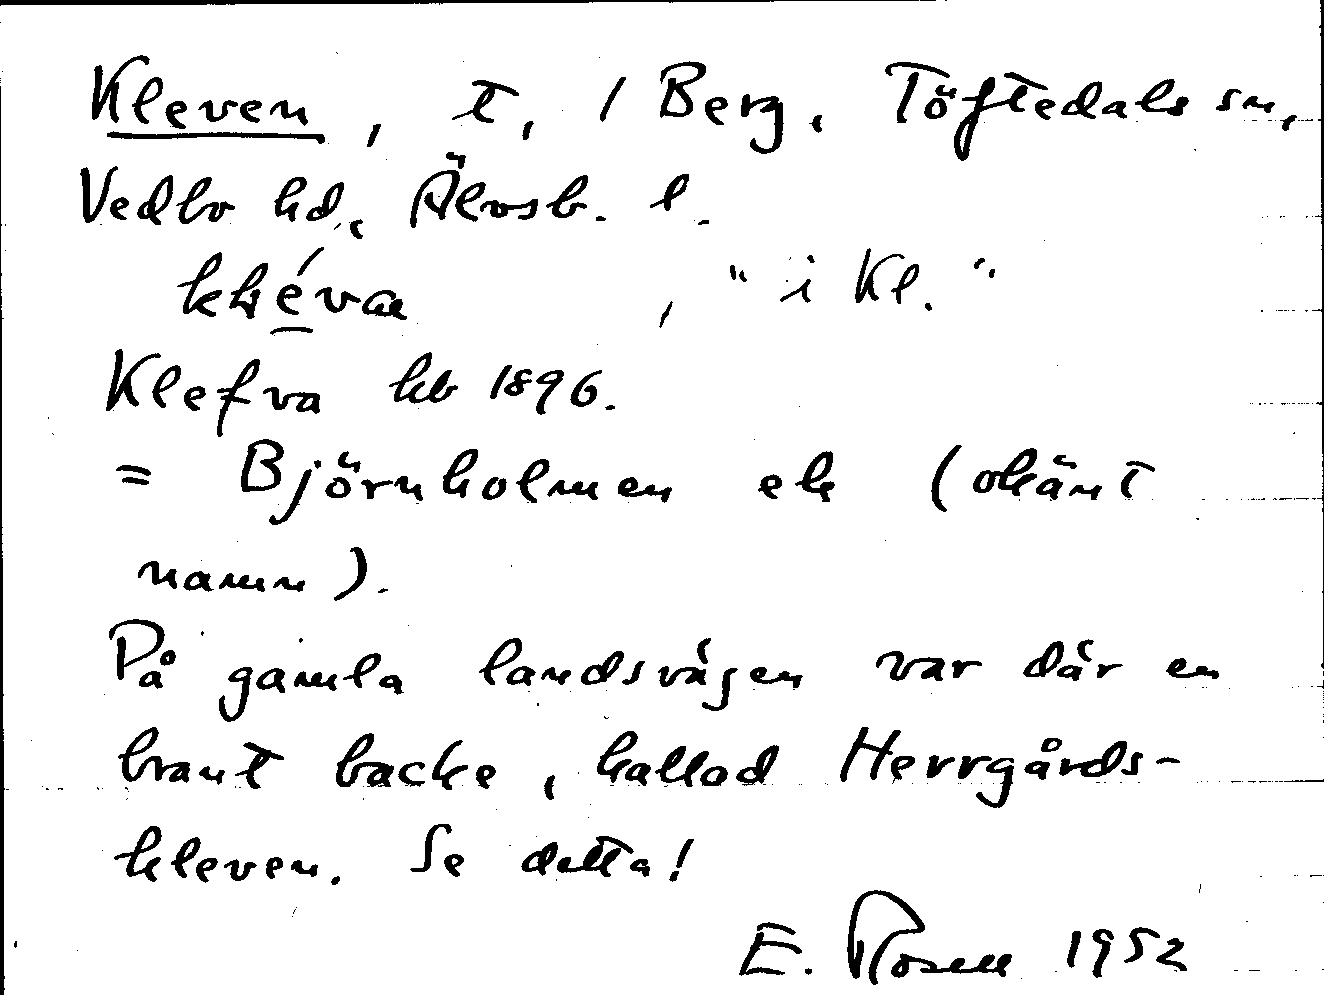 Kleven, t, 1 Berg, Töftedals sn,
Vedbo hd, Älvsb. l.
"i Kl."
Klefva kb 1896.
= Björnholmen ek (okänt
namn).
På gamla landsvägen var där en
brant backe, kallad Herrgårds-
kleven. Se detta!
E. Rosell 1952